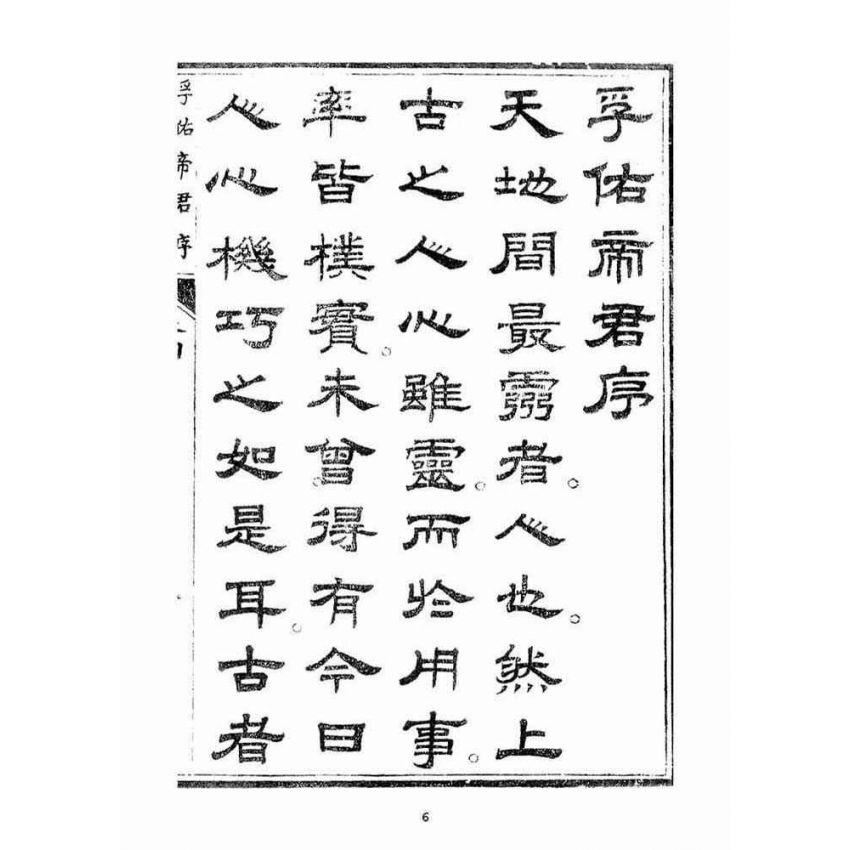 孚佑帝君序
天地間最靈者。人也。然上
古之人心雖靈。而於用事。
率皆樸實。未曾得有今日
人心機巧之如是耳。古者
孚佑帝君序
一
6